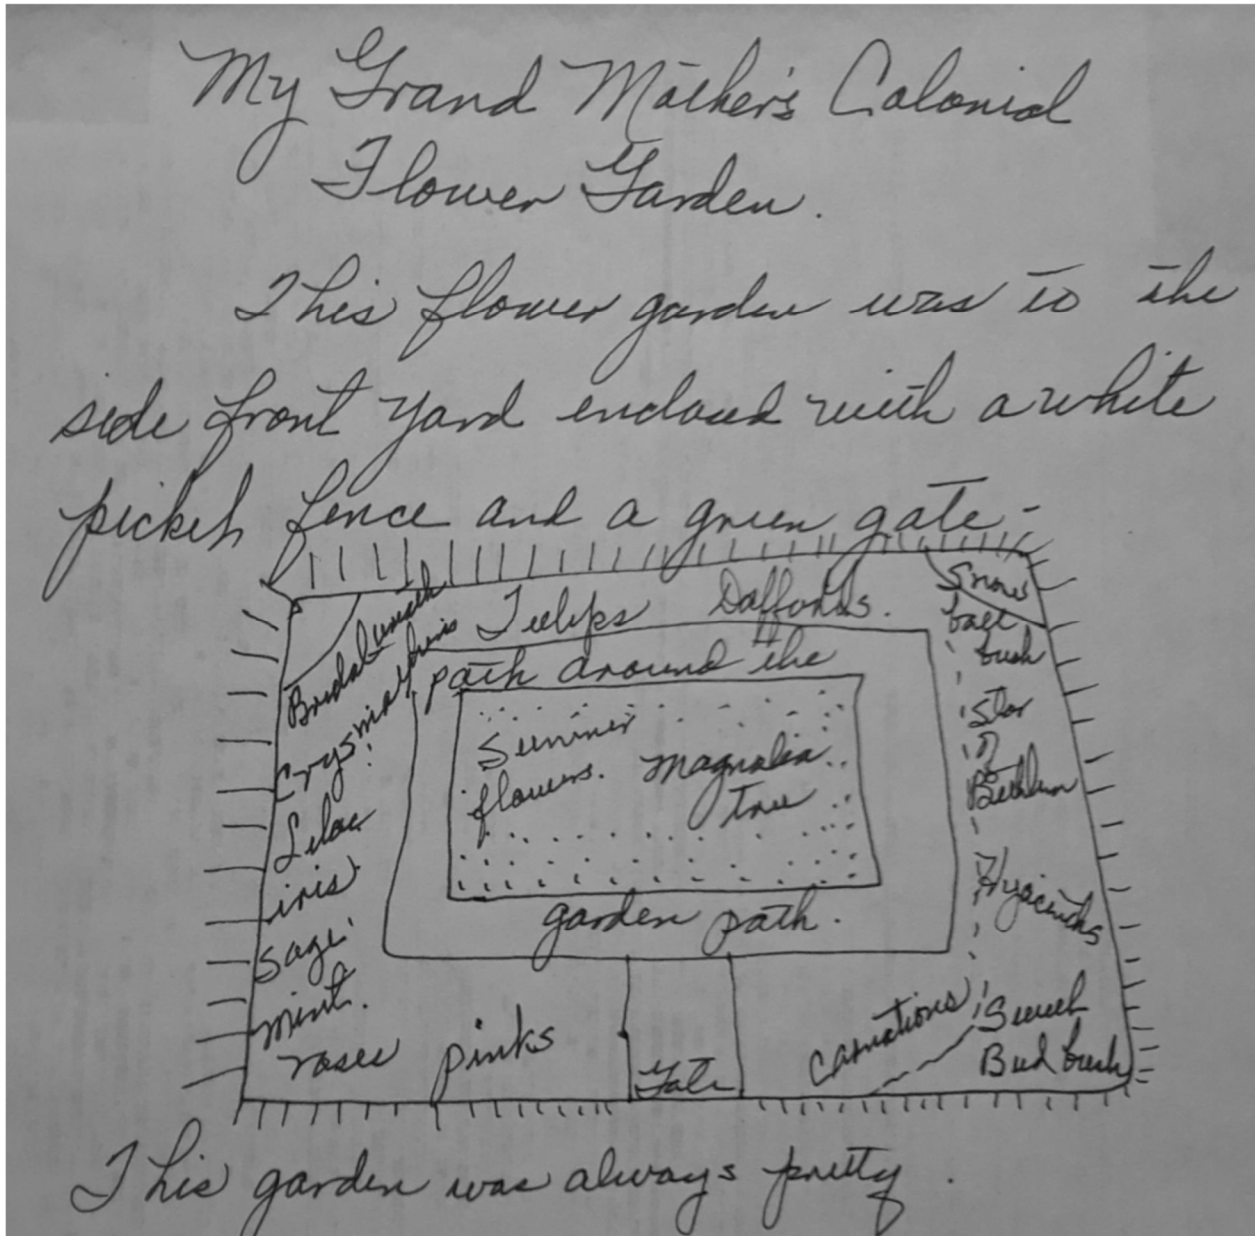 My Grand Mother's Colonial
Flower Garden.
This flower garden was to the
side front yard enclosed with a white
picket fence and a green gate-
Bridal wreath
Tulips Daffodils.
Snow
ball
bush
path around the
Star
of
Bethlem
Summer
flowers. Magnolia
tree
Lilac
iris.
sage.
mint.
roses
Hyacinths
garden path.
pinks
Gate
Carnations
Sweet
Bud bush
This garden was always pretty.